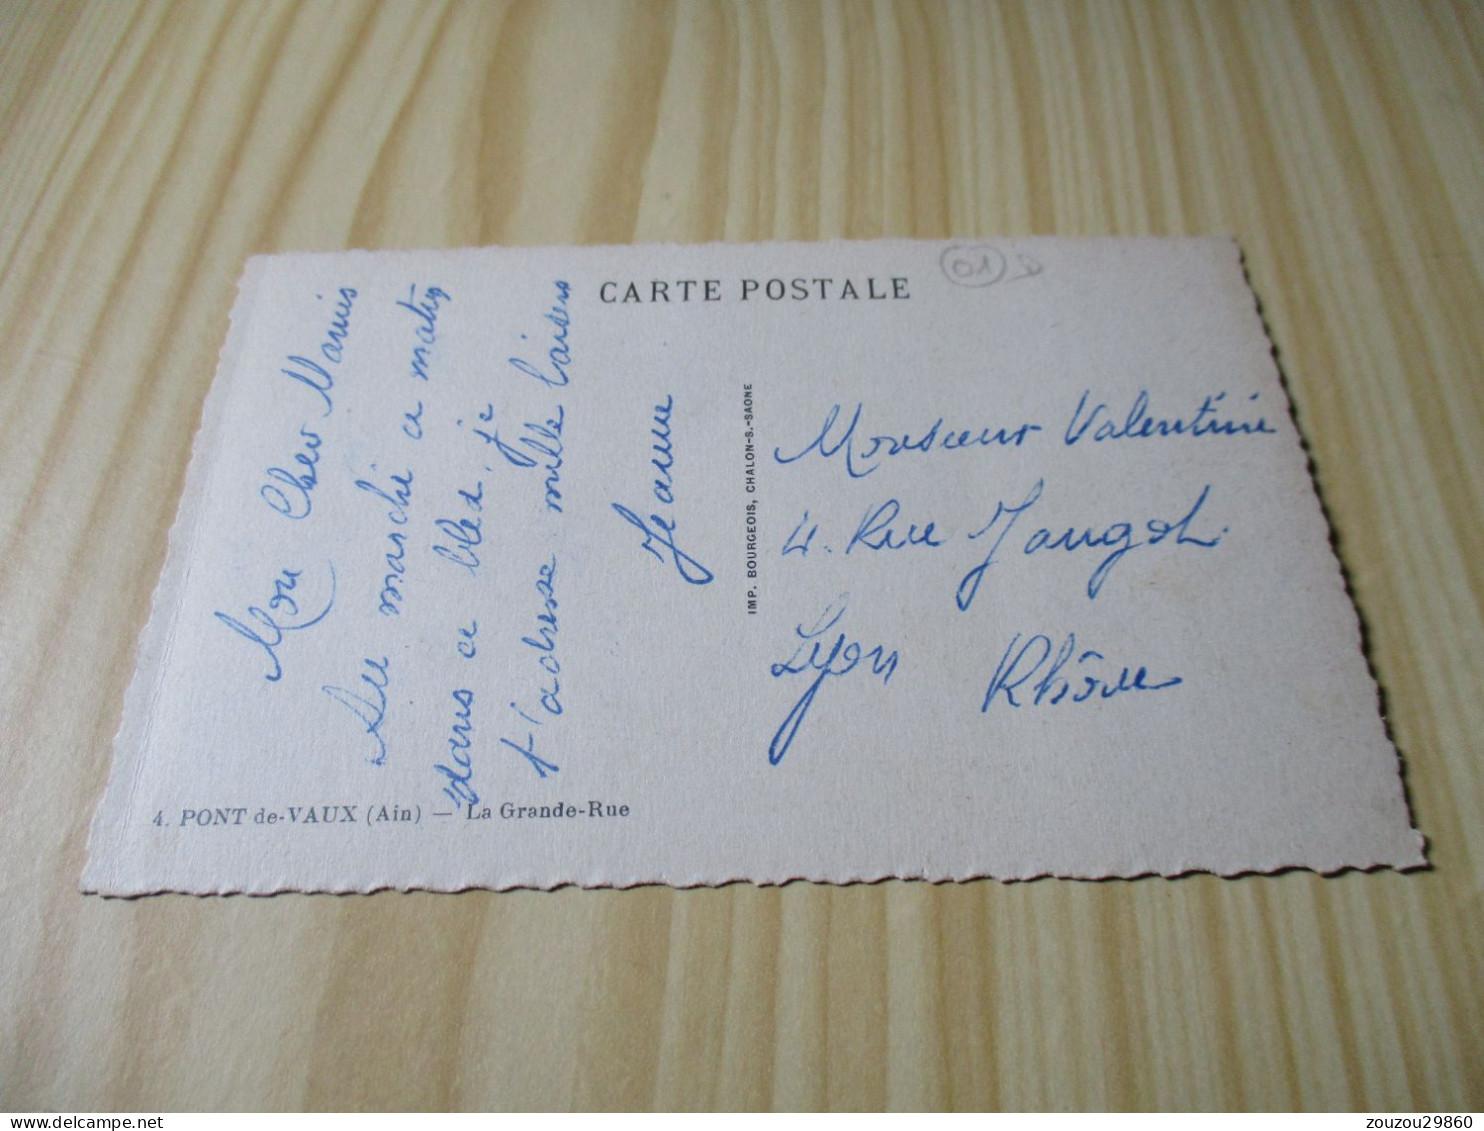 CARTE POSTALE
01
Mon Cher Marius
Au marché ce matin
dans ce bled. je
t'adresse mille baisers
Jeanne
IMP. BOURGEOIS, CHALON-S.-SAONE
Monsieur Valentine
4. Rue Jangot.
Lyon Rhône
4. PONT de-VAUX (Ain) — La Grande-Rue
zouzou29860